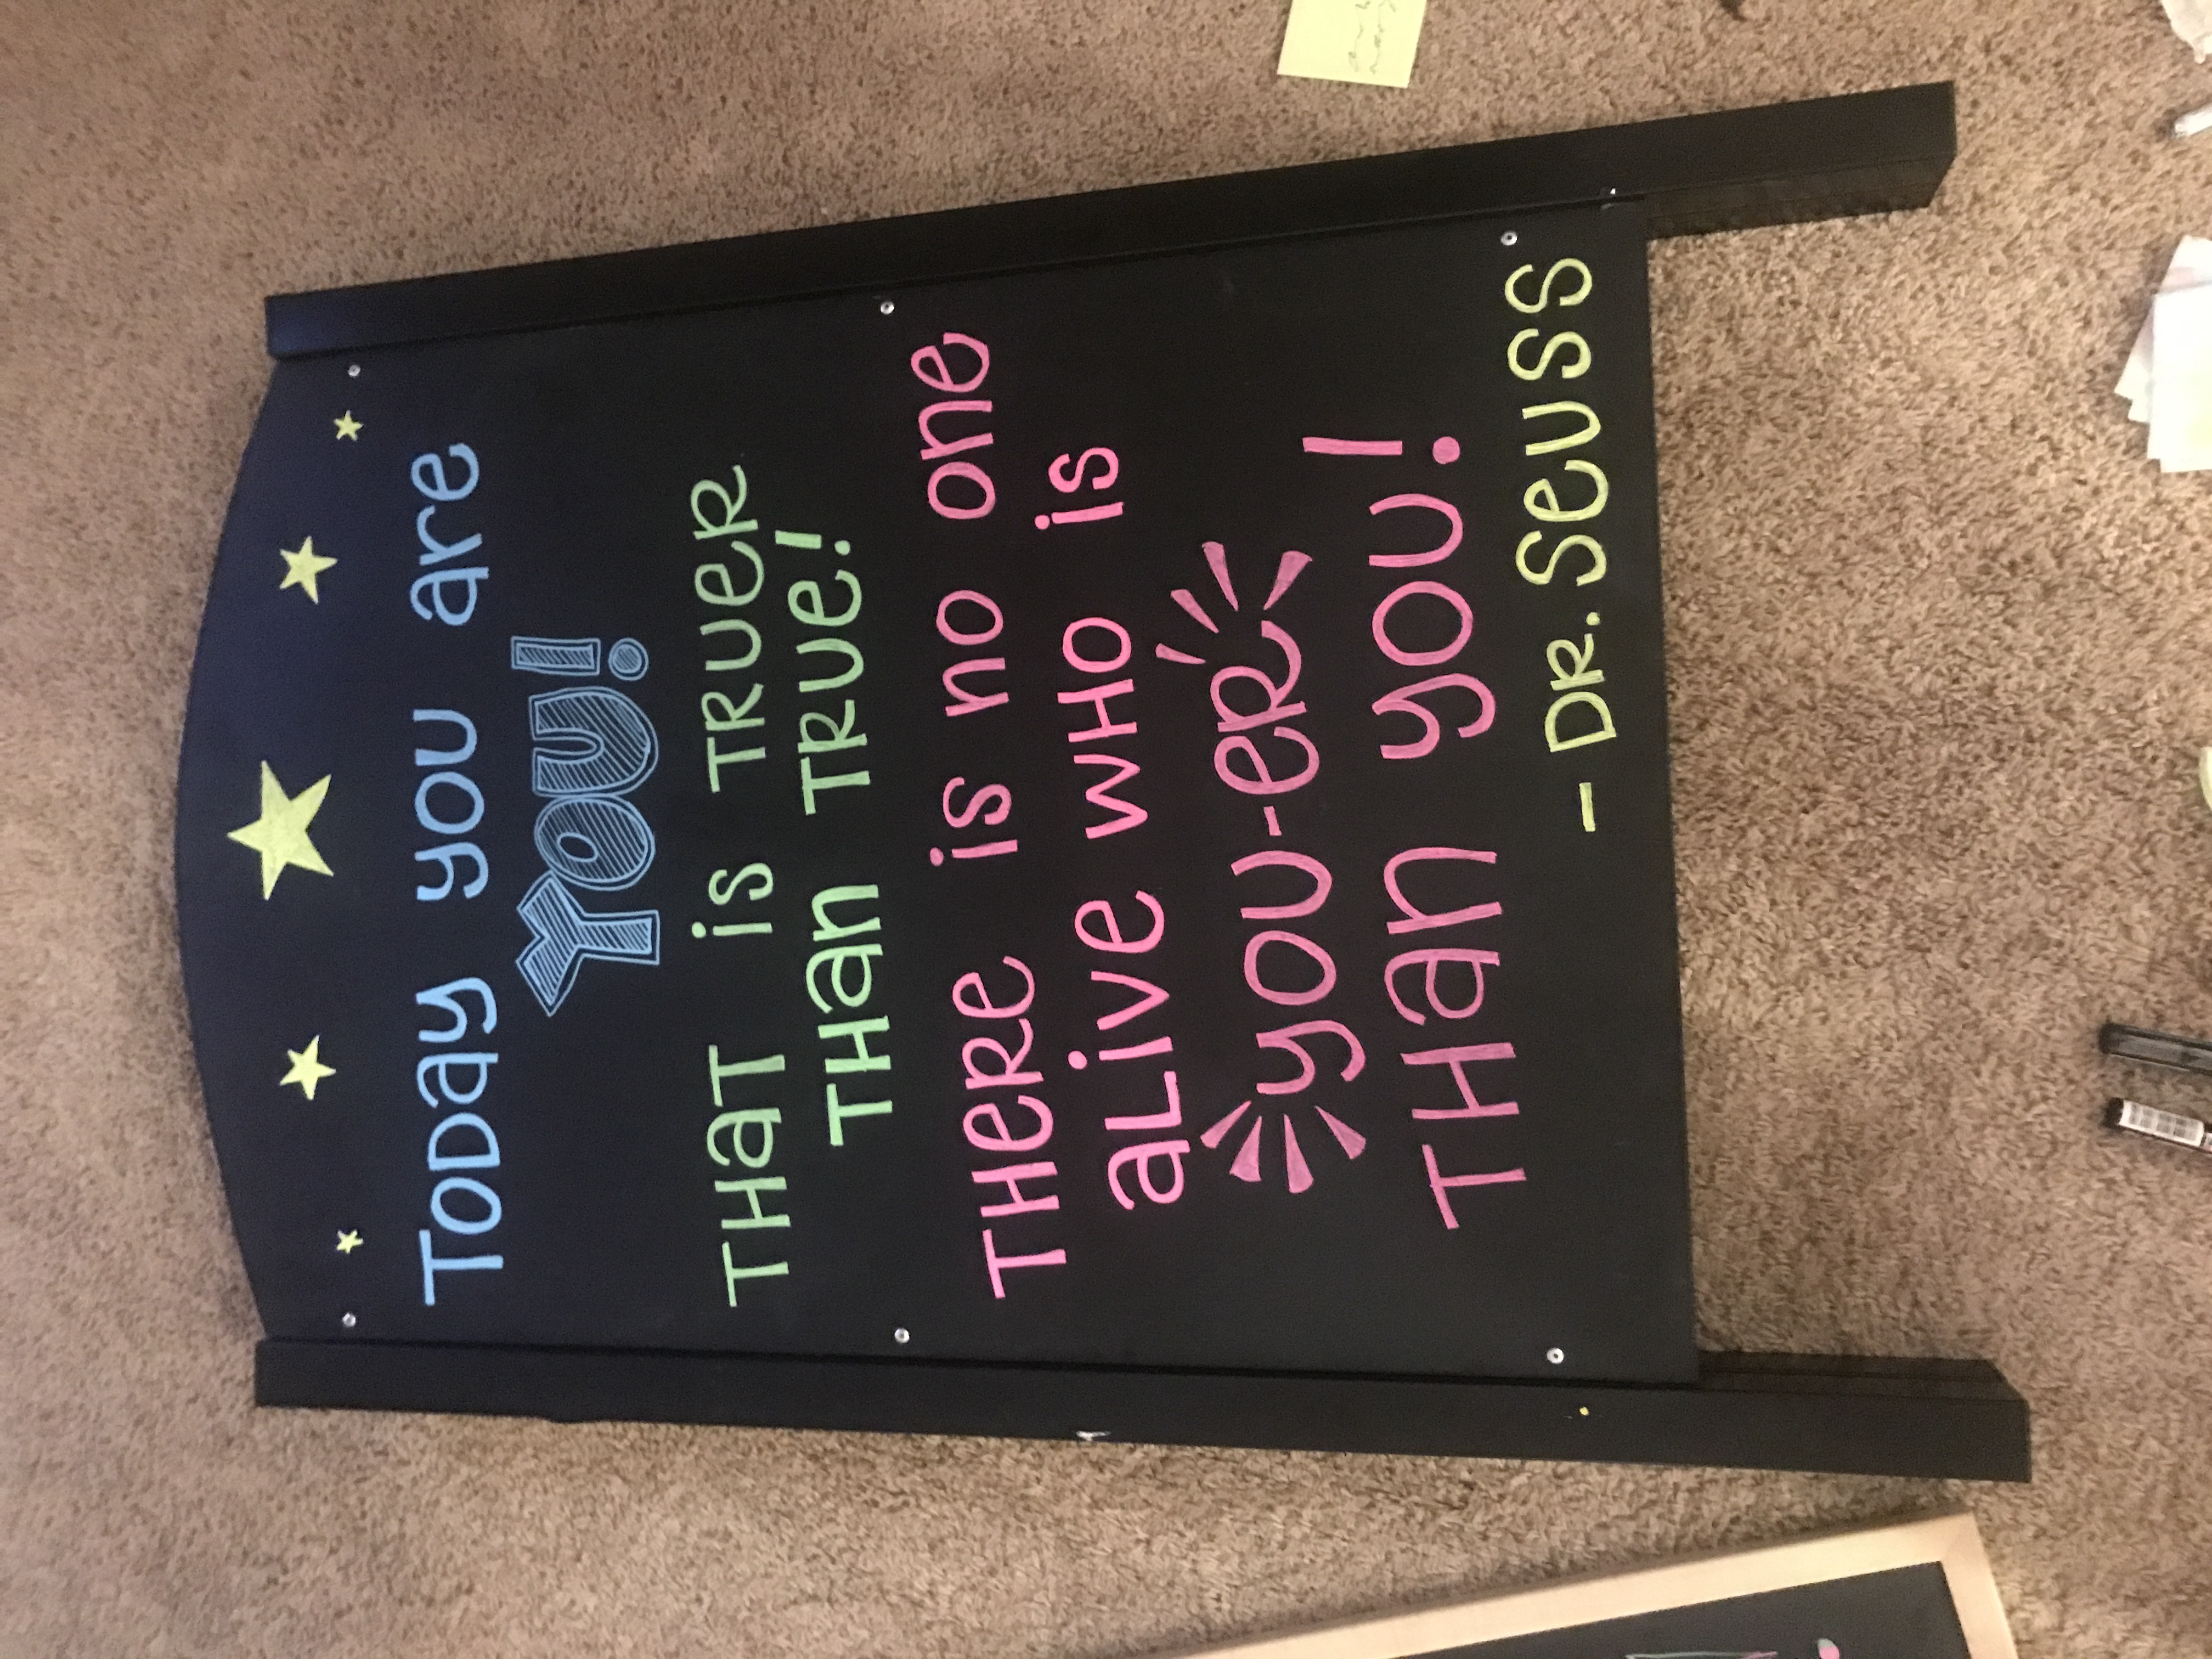 Today you are
YOU!
THAT is TRUER
THAN TRUE!
THERE is no one
ALIVE WHO is
YOU-ER
THAN YOU!
- DR. SEUSS